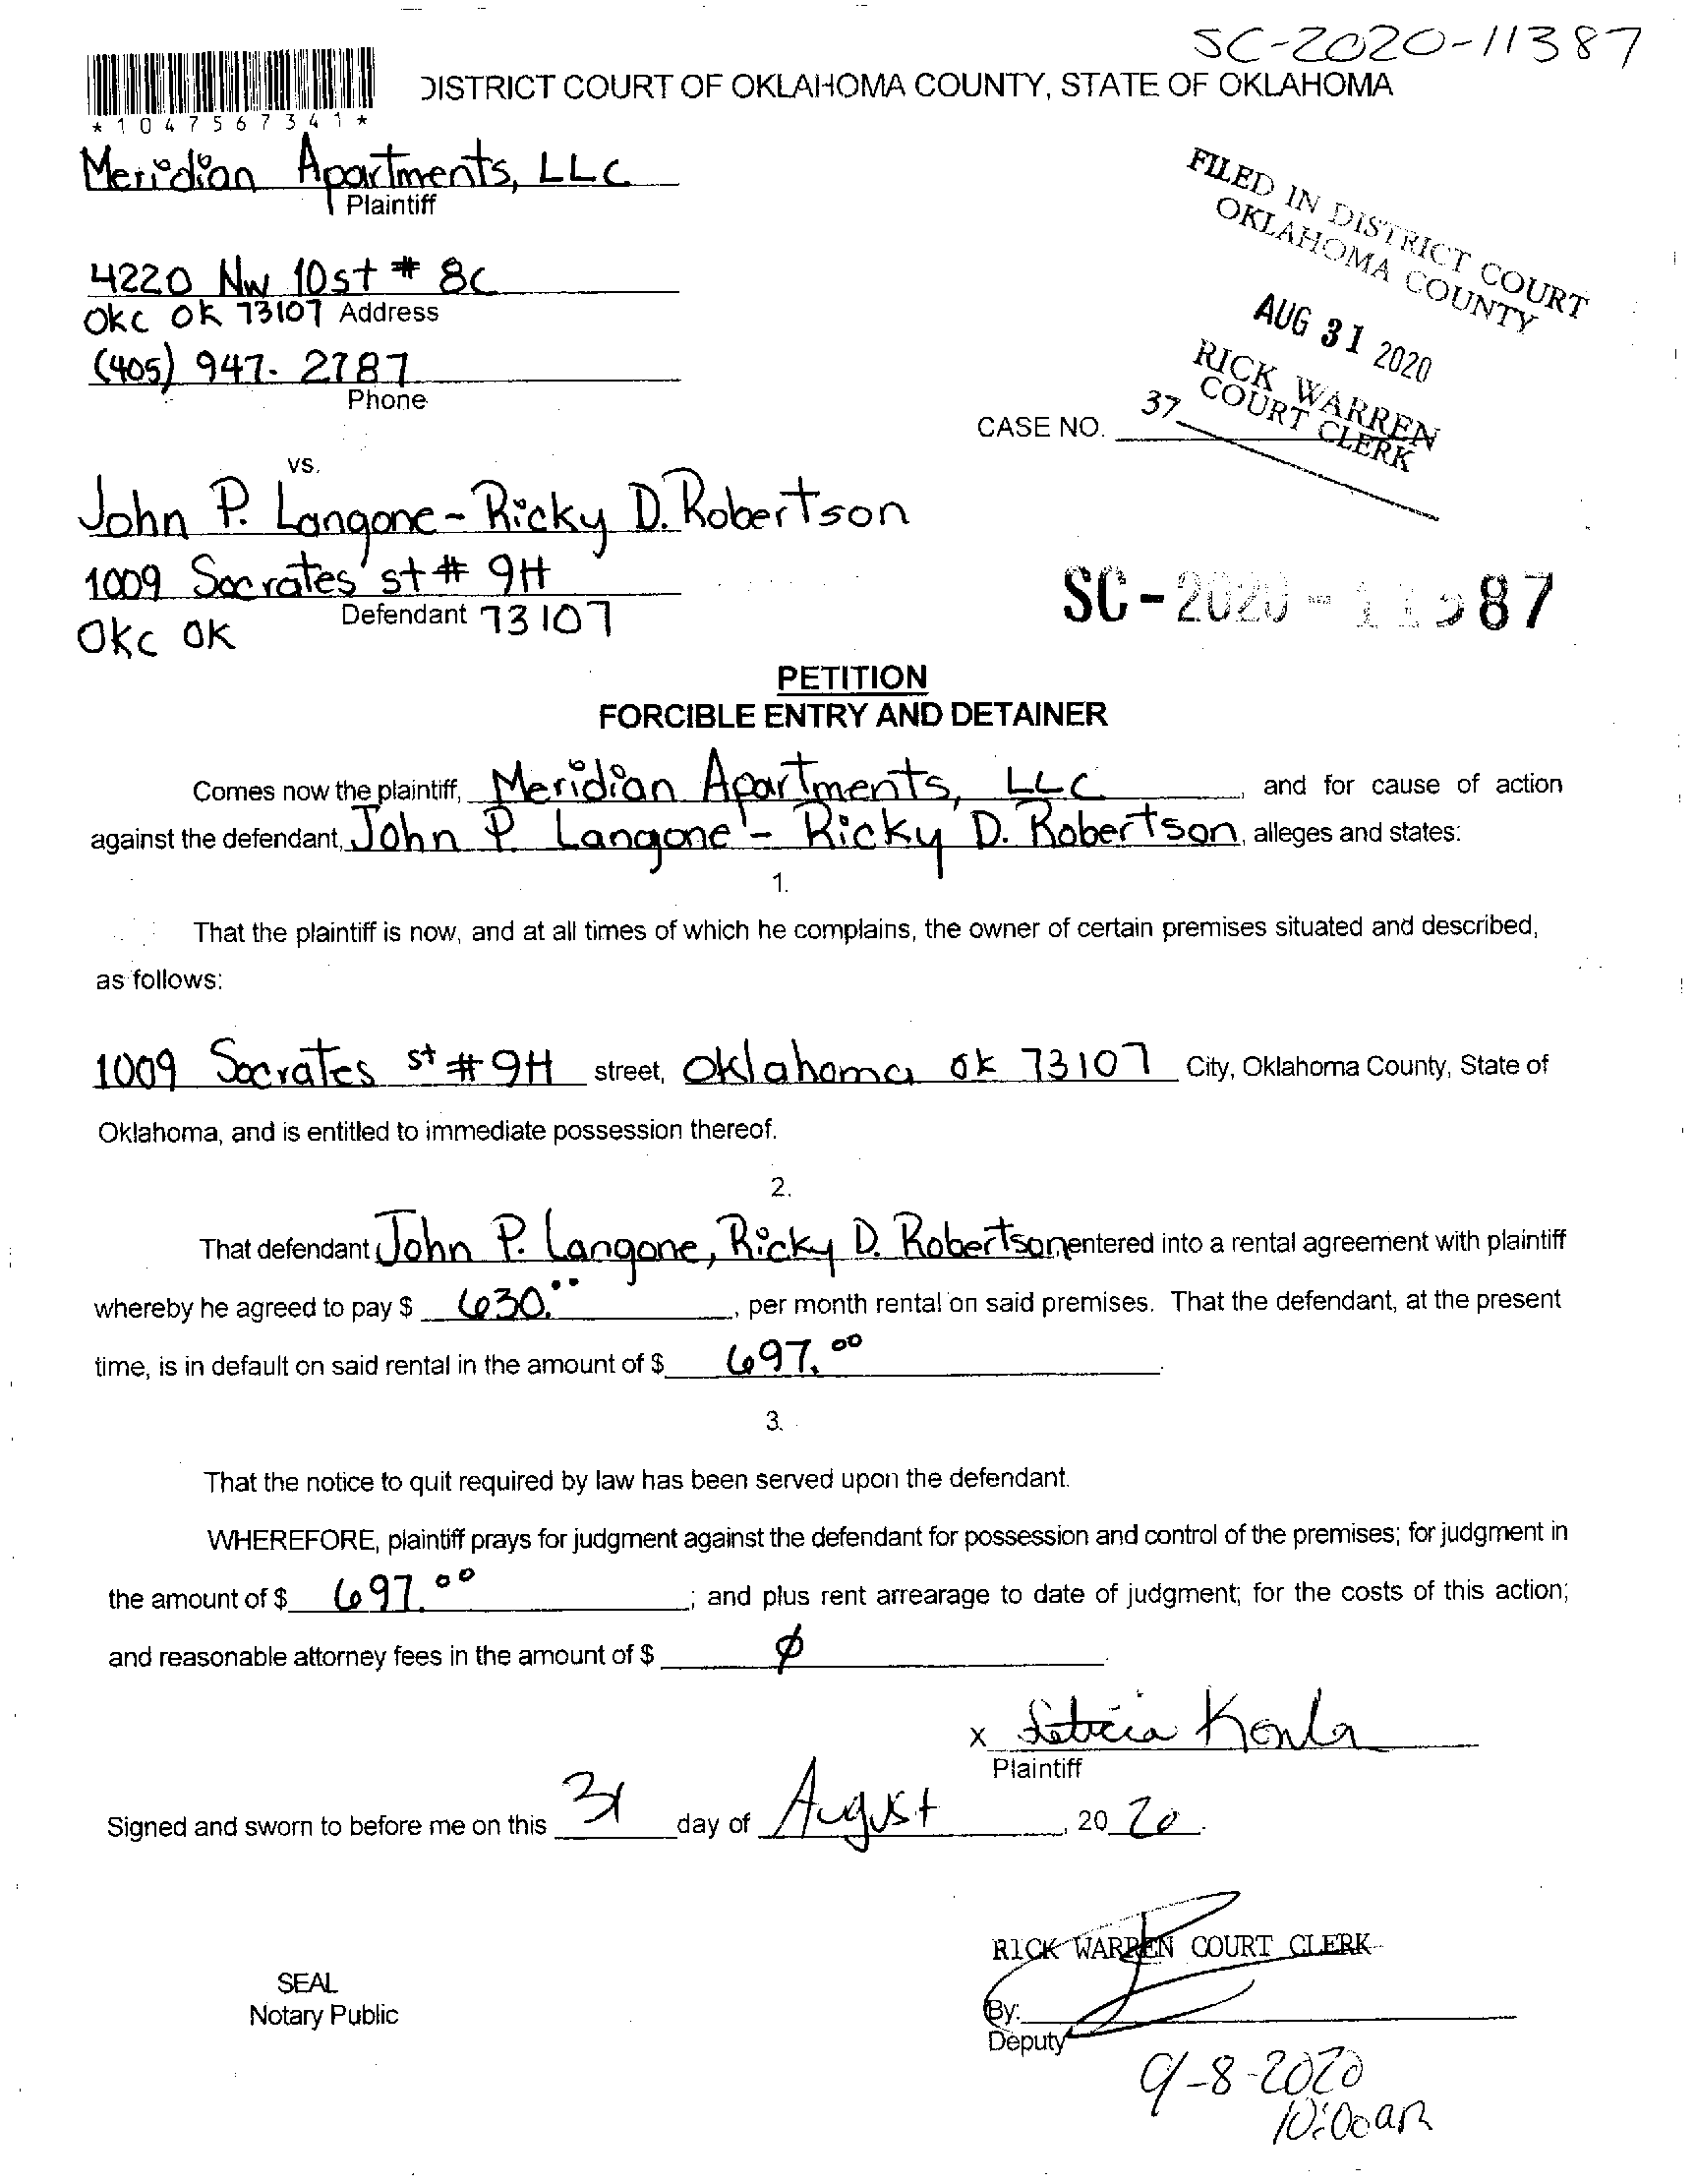 SC-2020-11387
*1047567341*
DISTRICT COURT OF OKLAHOMA COUNTY, STATE OF OKLAHOMA
Meridian Apartments, LLC
Plaintiff
4220 NW 10st # 8C
OKC OK 73107 Address
(405) 947- 2787
Phone
FILED IN DISTRICT COURT
OKLAHOMA COUNTY
AUG 31 2020
RICK WARREN
COURT CLERK
37
CASE NO.
vs.
John P. Langone - Ricky D. Robertson
1009 Socrates st # 9H
Defendant 73107
OKC OK
SC-2020-11387
PETITION
FORCIBLE ENTRY AND DETAINER
Comes now the plaintiff, Meridian Apartments, LLC, and for cause of action
against the defendant, John P. Langone - Ricky D. Robertson, alleges and states:
1.
That the plaintiff is now, and at all times of which he complains, the owner of certain premises situated and described,
as follows:
1009 Socrates st # 9H street, Oklahoma ok 73107 City, Oklahoma County, State of
Oklahoma, and is entitled to immediate possession thereof.
2.
That defendant John P. Langone, Ricky D. Robertson entered into a rental agreement with plaintiff
whereby he agreed to pay $ 630.°°, per month rental on said premises. That the defendant, at the present
time, is in default on said rental in the amount of $ 697.°°.
3.
That the notice to quit required by law has been served upon the defendant.
WHEREFORE, plaintiff prays for judgment against the defendant for possession and control of the premises; for judgment in
the amount of $ 697.°°; and plus rent arrearage to date of judgment; for the costs of this action;
and reasonable attorney fees in the amount of $ ∅.
x Leticia
Plaintiff
Signed and sworn to before me on this 31 day of August, 20 20.
RICK WARREN COURT CLERK
SEAL
Notary Public
By:
Deputy
9-8-2020
10:00am